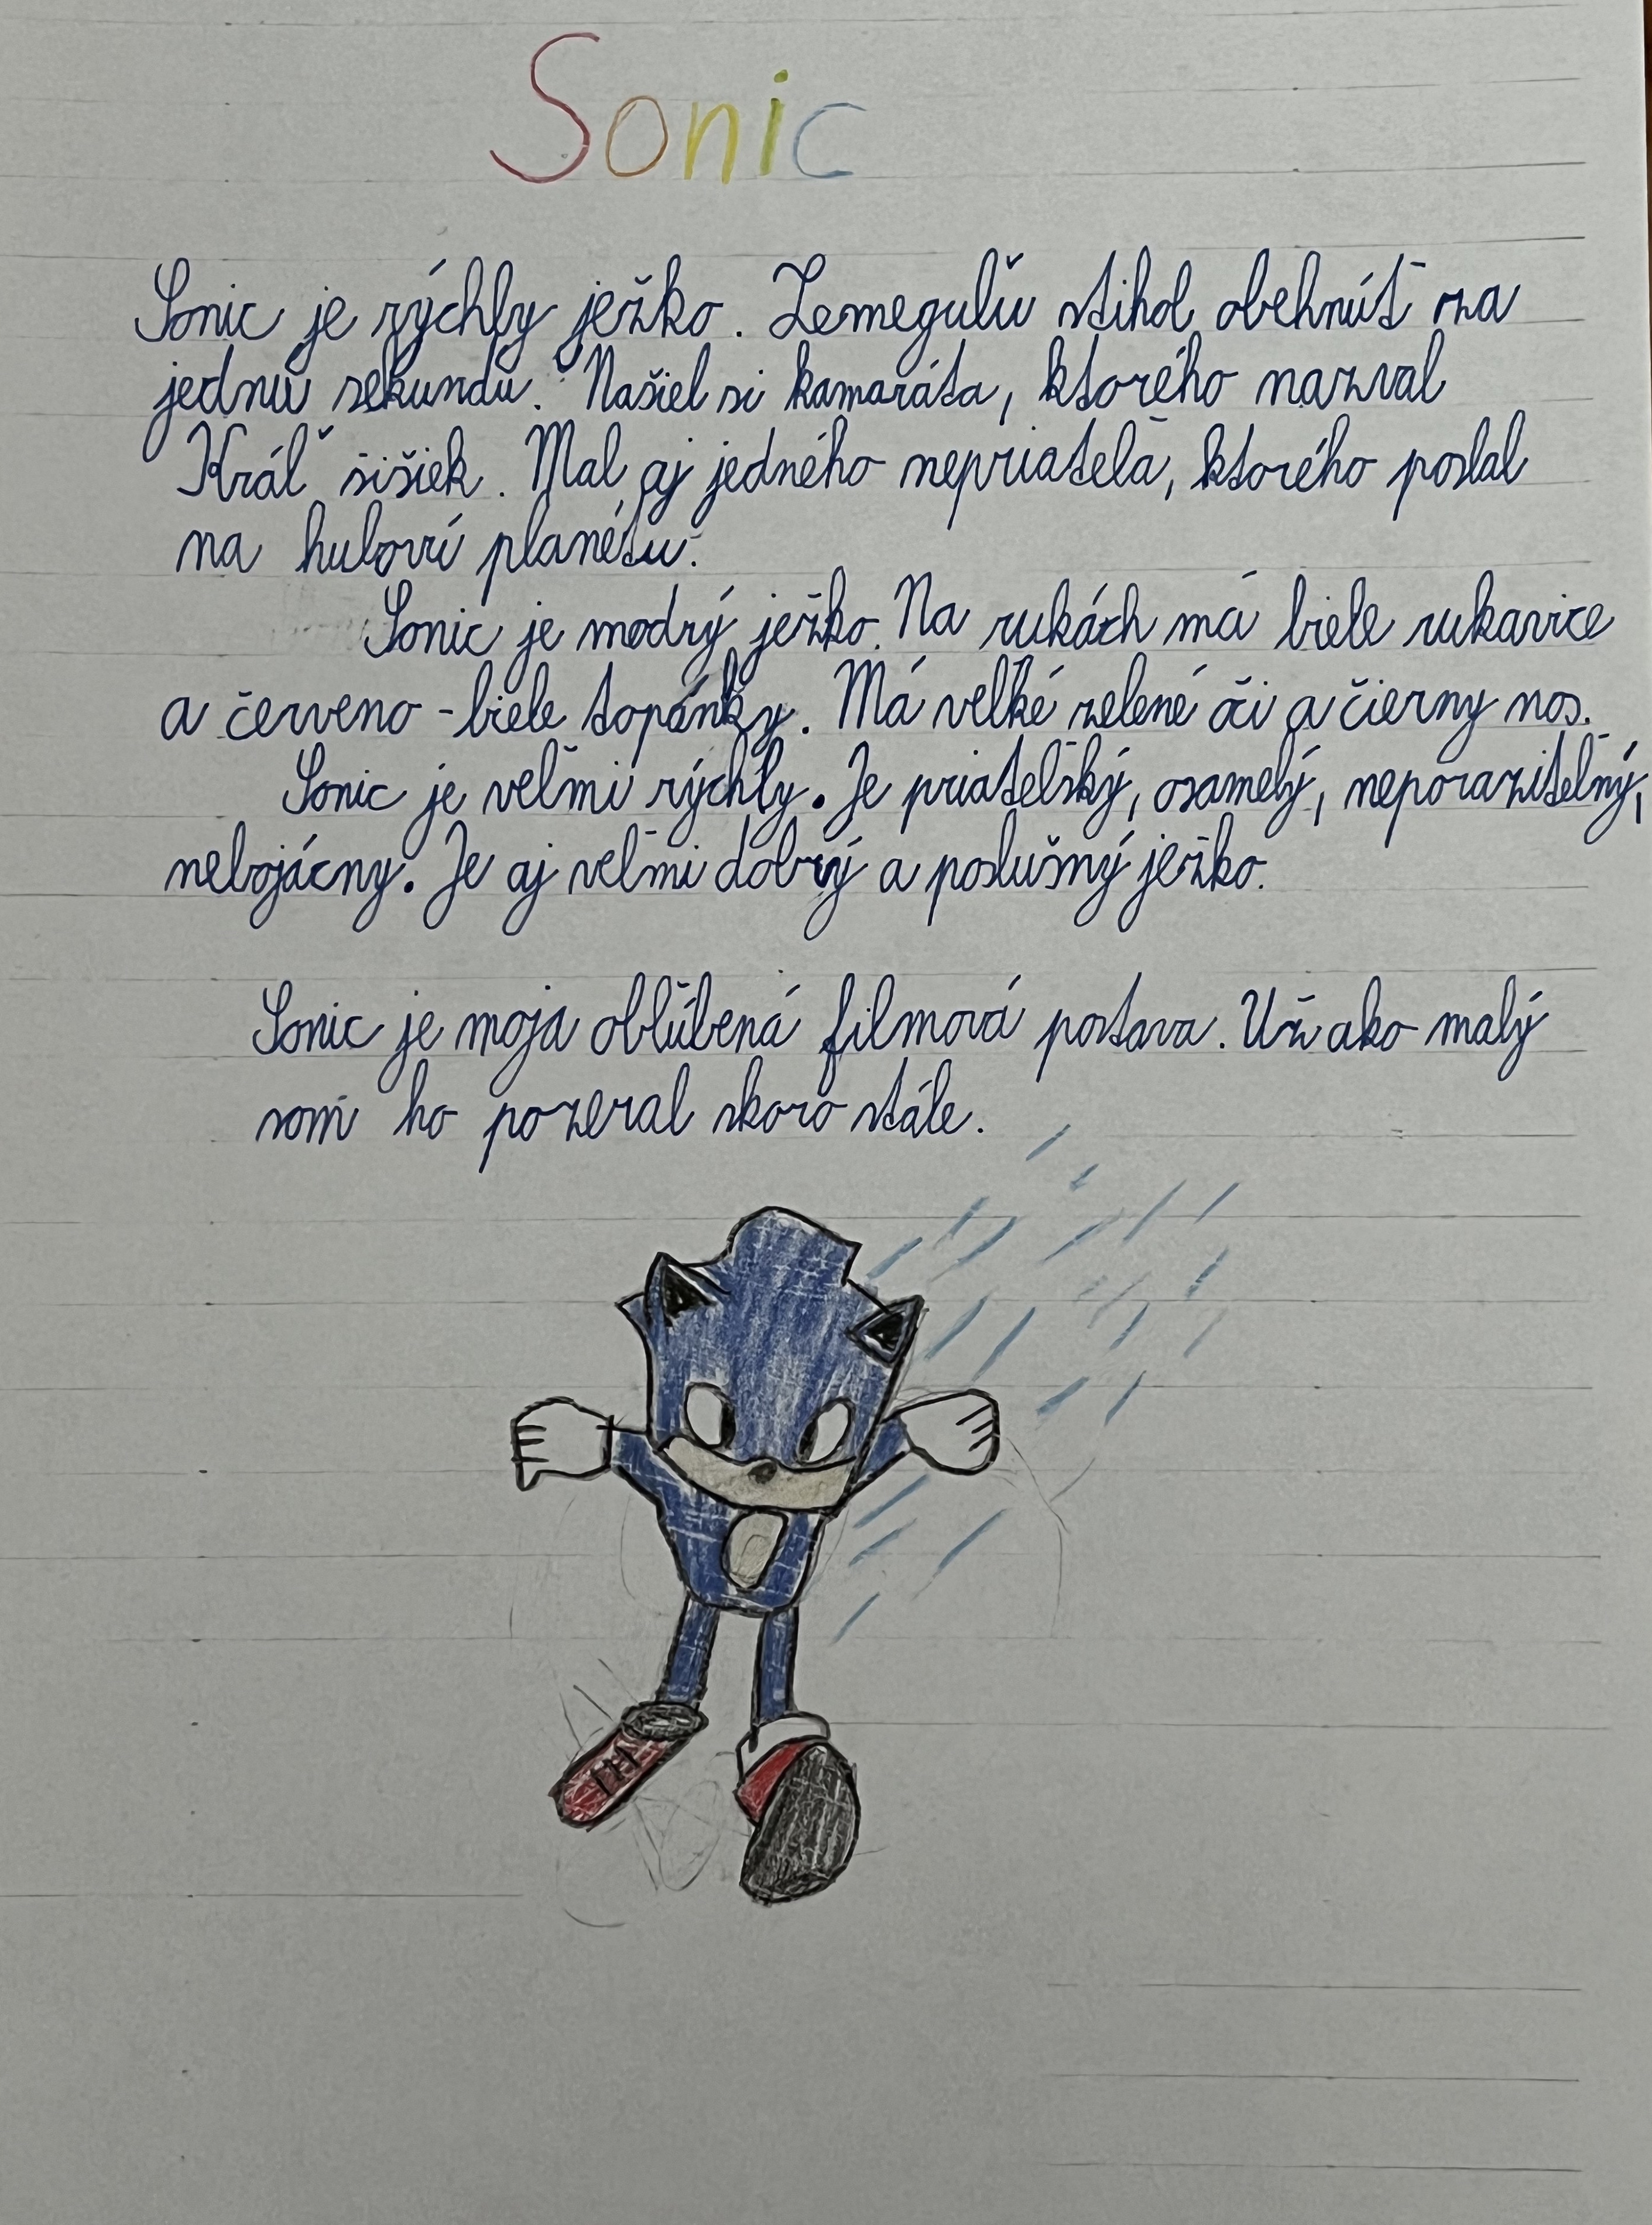 Sonic
Sonic je rýchly ježko. Zemeguľu stihol obehnúť za
jednu sekundu. Našiel si kamaráta, ktorého nazval
Kráľ šišiek. Mal aj jedného nepriateľa, ktorého poslal
na hubovú planétu.
Sonic je modrý ježko. Na rukách má biele rukavice
a červeno-biele topánky. Má veľké zelené oči a čierny nos.
Sonic je veľmi rýchly. Je priateľský, osamelý, neporaziteľný,
nebojácny. Je aj veľmi dobrý a poslušný ježko.
Sonic je moja obľúbená filmová postava. Už ako malý
som ho pozeral skoro stále.